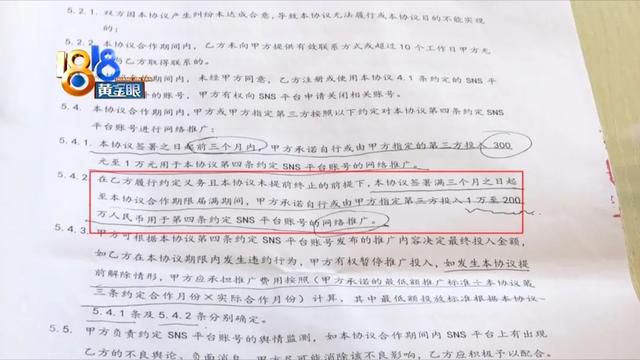 5.2.1. 双方因本协议产生纠纷未达成合意，导致本协议无法履行或本协议目的不能实现
的；
5.2.2. 本协议合作期间内，乙方未向甲方提供有效联系方式或超过10个工作日甲方无
与乙方取得联系的。
期间内，未经甲方同意，乙方注册或使用本协议4.1条约定的SNS平
号的，甲方有权向SNS平台申请关闭相关账号。
1818
黄金眼
5.4. 本协议合作期间内，甲方或甲方指定第三方按照以下约定对本协议第四条约定SNS
平台账号进行网络推广：
5.4.1. 本协议签署之日起前三个月内，甲方承诺自行或由甲方指定的第三方投入300
元至1万元用于本协议第四条约定SNS平台账号的网络推广。
5.4.2. 在乙方履行约定义务且本协议未提前终止的前提下，本协议签署满三个月之日起
至本协议合作期限届满期间，甲方承诺自行或由甲方指定第三方投入1万至200
万人民币用于第四条约定SNS平台账号的网络推广。
5.4.3. 甲方可根据本协议第四条约定SNS平台账号发布的推广内容决定最终投入金额，
如乙方在本协议期限内发生违约行为，甲方有权暂停推广投入，如发生本协议提
前解除情形，甲方应承担推广费用按照（甲方承诺的最低额推广标准÷本协议第
三条约定合作月份×实际合作月份）计算，其中最低额投放标准根据本协议
5.4.1条及5.4.2条分别确定。
5.5. 甲方负责约定SNS平台账号的舆情监测，如本协议合作期间内SNS平台上有出现
乙方的不良舆论、负面消息，甲方尽可能消除该不良影响，乙方应积极予以配合。